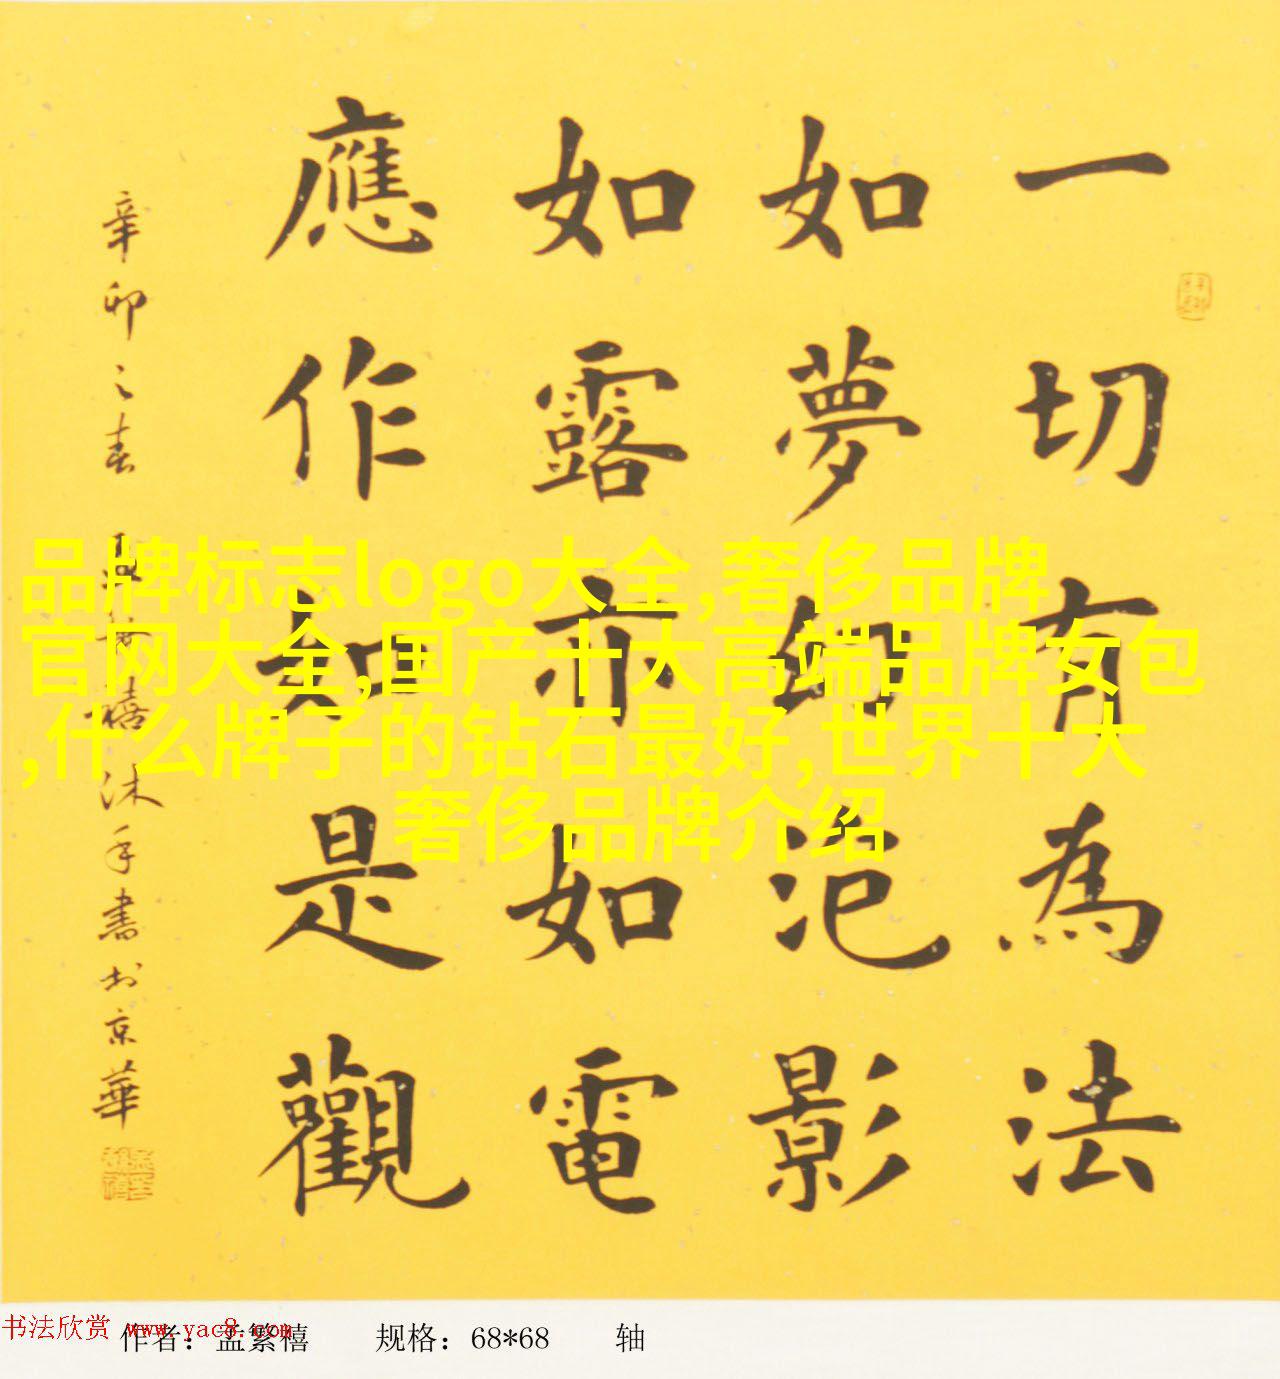 一切有為法
如夢幻泡影
如露亦如電
應作如是觀
辛卯之春 孟繁禧沐手書於京華
品牌标志logo大全,奢侈品牌
官网大全,国产十大高端品牌女包
,什么牌子的钻石最好,世界十大
奢侈品牌介绍
书法欣赏 www.yac8.com
作者：孟繁禧 规格：68*68 轴